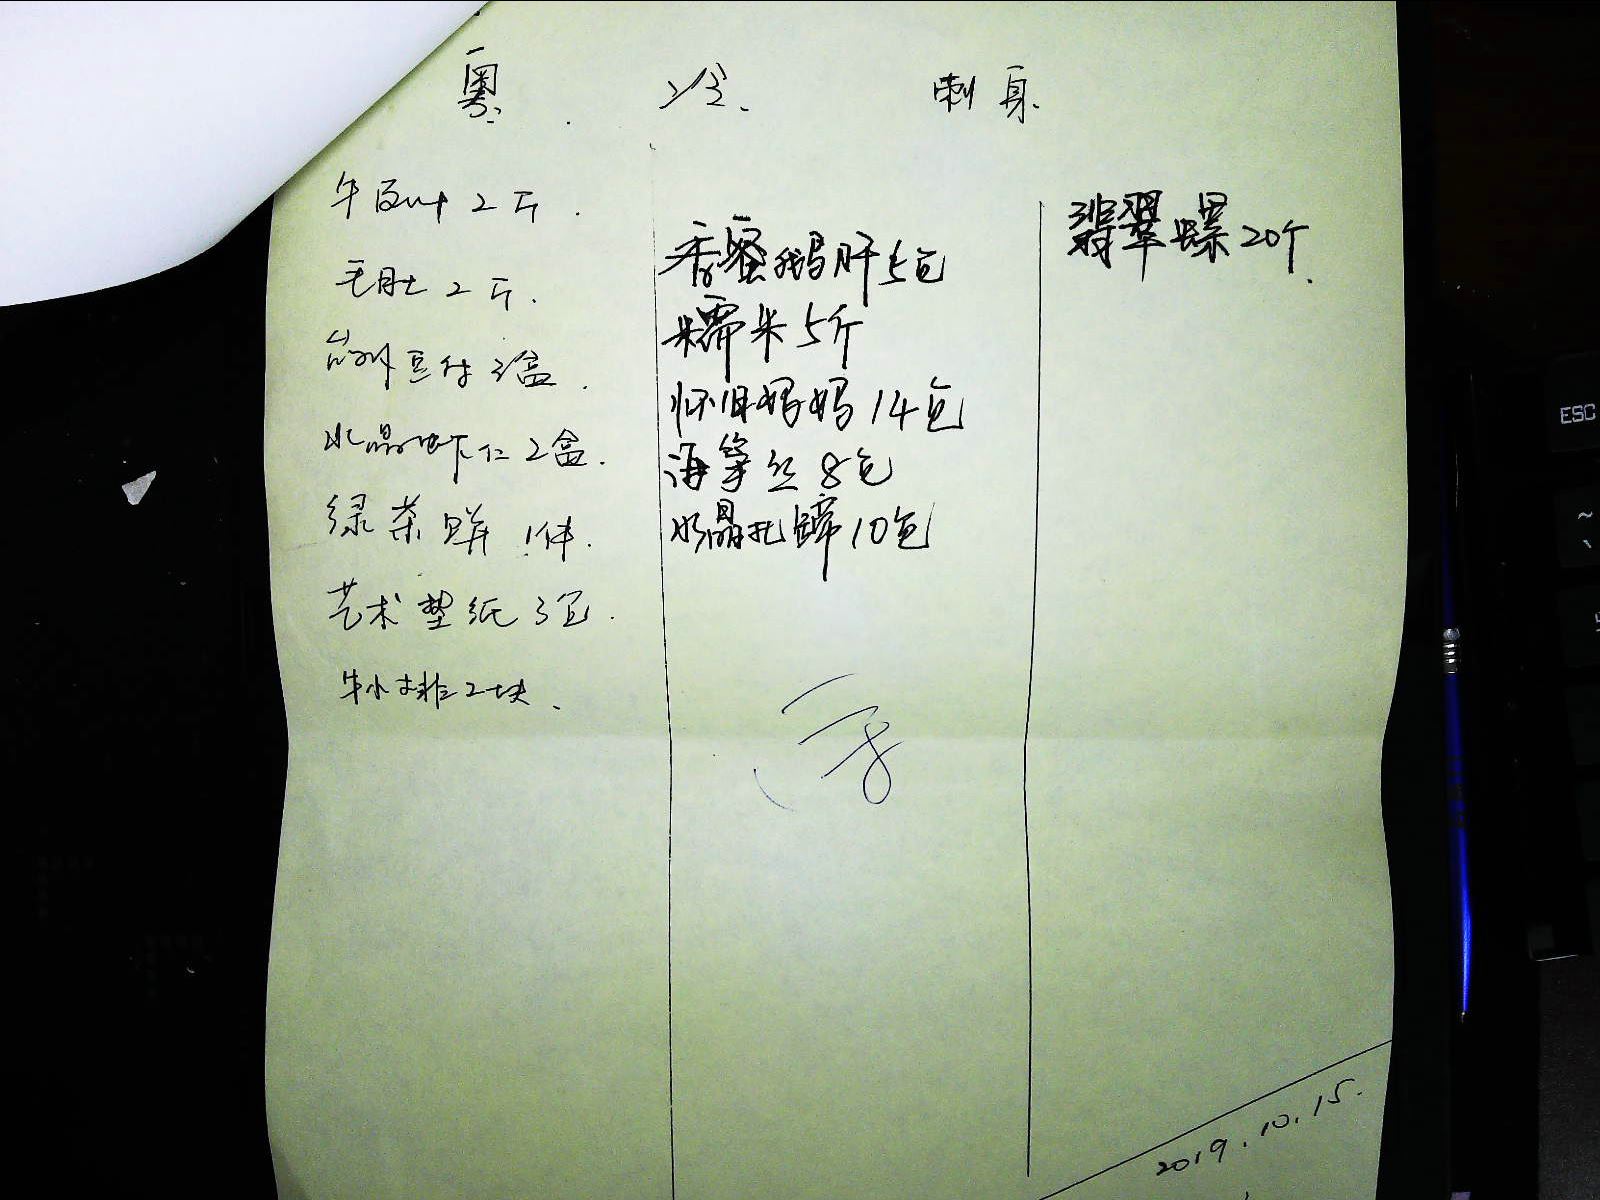 粤 冷 刺身
牛百叶2斤.
毛肚2斤.
台州豆付3盒.
水晶虾仁2盒.
绿茶饼1件.
艺术垫纸3包.
牛小排2块.
香蜜鹅肝5包
糯米5斤
怀旧妈妈14包
海笋丝8包
水晶扎蹄10包
翡翠螺20个.
2019.10.15.
ESC